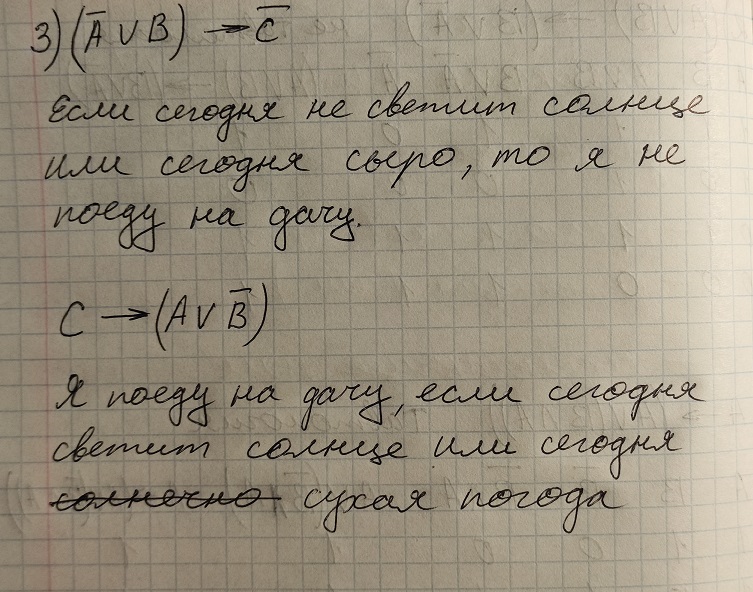 3) (A̅ ∨ B) → C̅
Если сегодня не светит солнце
или сегодня сыро, то я не
поеду на дачу.
C → (A ∨ B̅)
Я поеду на дачу, если сегодня
светит солнце или сегодня
солнечно сухая погода